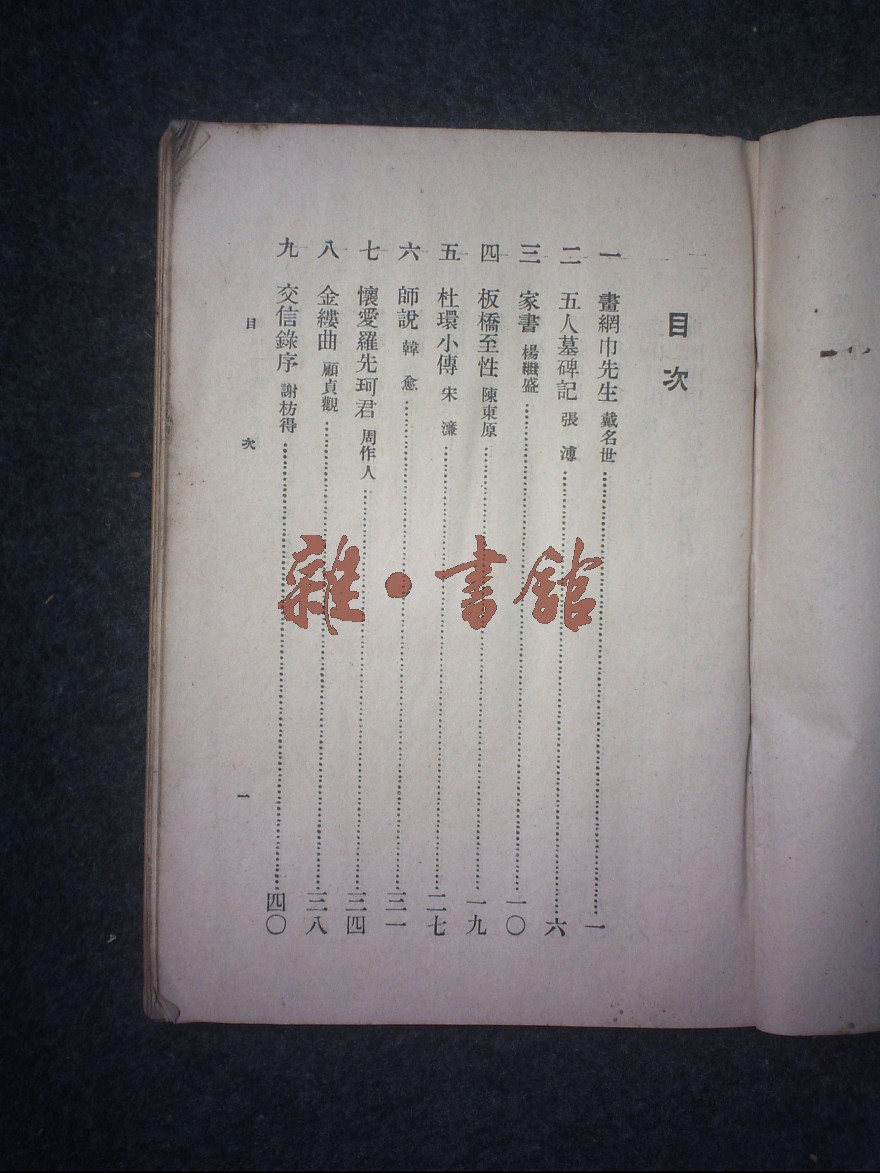 目次
一 畫網巾先生 戴名世 一
二 五人墓碑記 張溥 六
三 家書 楊繼盛 一〇
四 板橋至性 陳東原 一九
五 杜環小傳 宋濂 二七
六 師說 韓愈 三一
七 懷愛羅先珂君 周作人 三四
八 金縷曲 顧貞觀 三八
九 交信錄序 謝枋得 四〇
目次 一
雜·書館